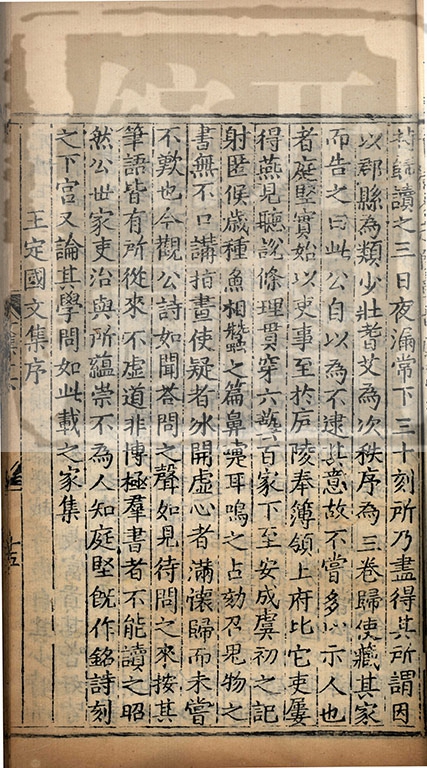 其歸讀之三日夜漏常下三十刻所乃盡得其所謂因
以郡縣為類少壯耆艾為次秩序為三卷歸使藏其家
而告之曰此公自以為不逮此意故不嘗多以示人也
者庭堅實始以吏事至於庐陵奉簿領上府比它吏屢
得燕見聽說條理貫穿六藝百家下至安成虞初之記
射匿候歲種魚相蠶之篇鼻嚏耳鳴之占劾召鬼物之
書無不口講指畫使疑者冰開虛心者滿讓歸而未嘗
不歎也今觀公詩如聞荅問之聲如見待問之來按其
筆語皆有所從來不虛道非博極羣書者不能讀之昭
然公世家吏治與所蘊崇不為人知庭堅旣作銘詩刻
之下宮又論其學問如此載之家集
王定國文集序
十五